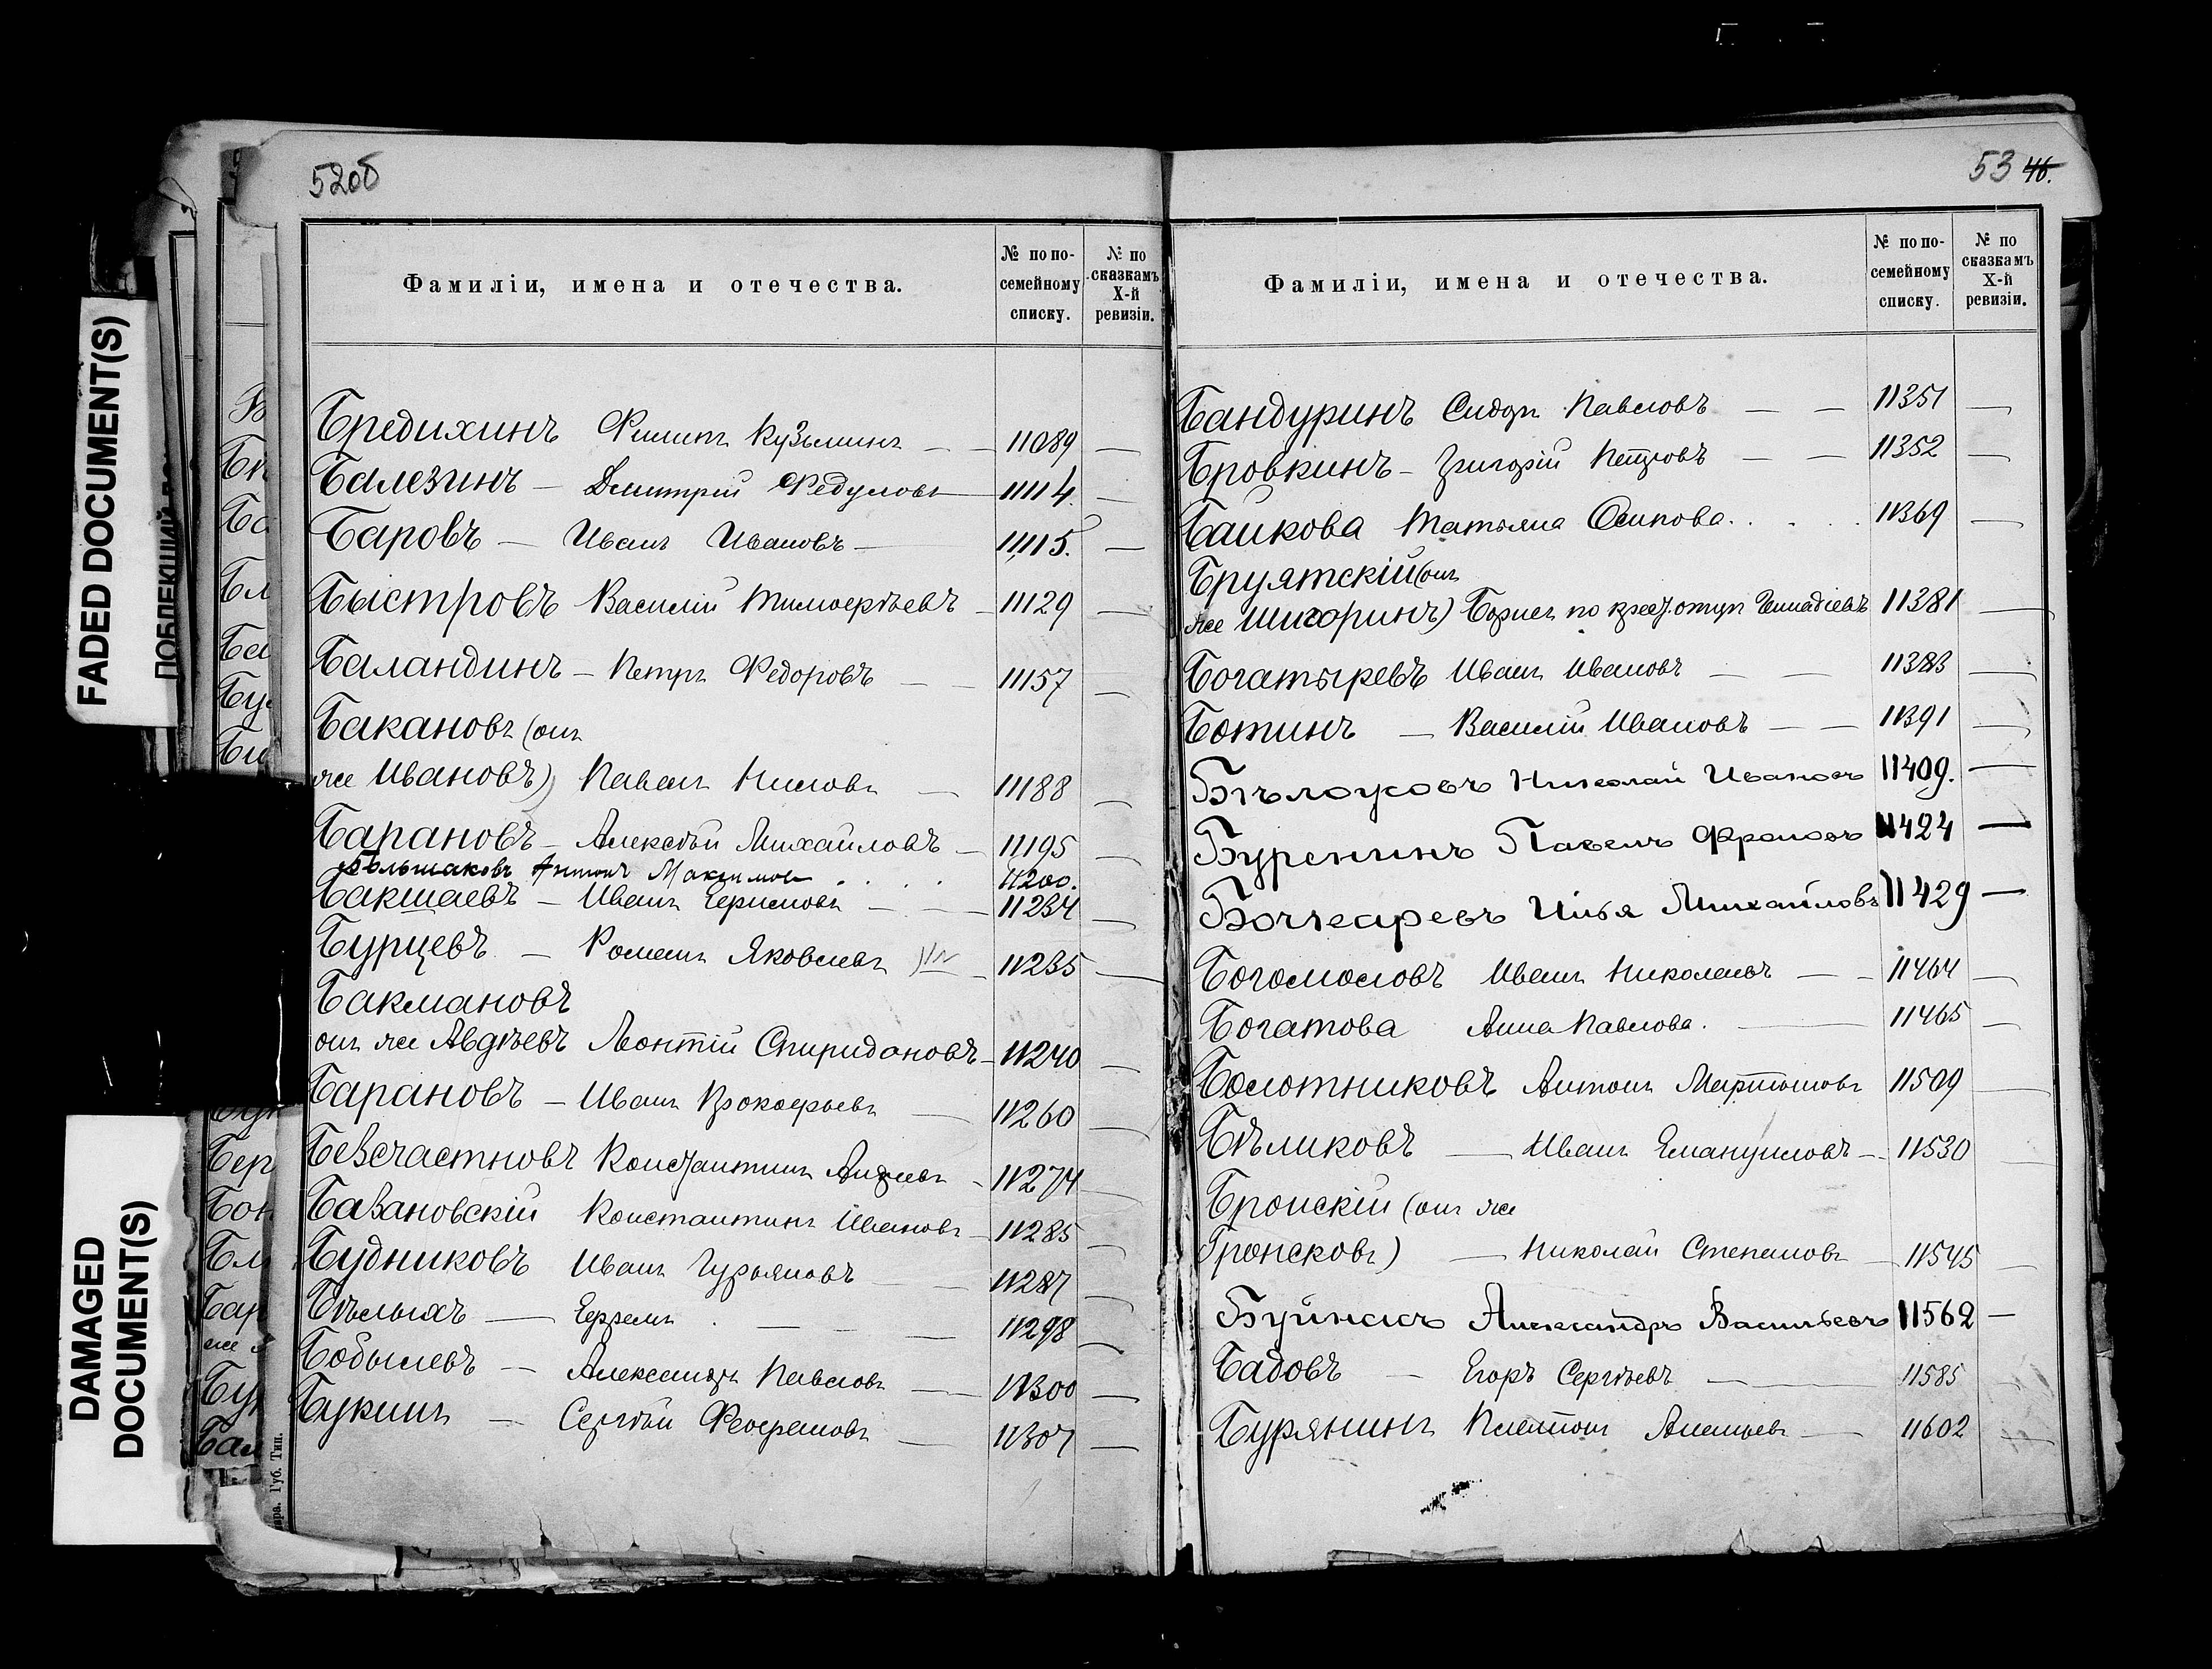 52об
Фамиліи, имена и отечества.
№ по по-
семейному
списку.
№ по
сказкамъ
X-й
ревизіи.
Бредихинъ Филиппъ Кузьминъ — 11089 —
Балезинъ — Дмитрій Федуловъ — 11114 —
Баровъ — Иванъ Ивановъ — 11115. —
Быстровъ Василій Тимофѣевъ — 11129 —
Баландинъ — Петръ Федоровъ — 11157 —
Бакановъ (онъ
же Ивановъ) Павелъ Ниловъ — 11188 —
Барановъ — Алексѣй Михайловъ — 11195 —
Большаковъ Антонъ Максимовъ . . . . 11200.
Бакшаевъ — Иванъ Ефимовъ — 11234 —
Бурцевъ — Романъ Яковлевъ — 11235 —
Бакмановъ
онъ же Авдѣевъ Леонтій Спиридоновъ — 11240 —
Барановъ — Иванъ Прокофьевъ — 11260 —
Безсчастновъ Константинъ Андреевъ — 11274 —
Базановскій Константинъ Ивановъ — 11285 —
Будниковъ Иванъ Гурьяновъ — 11287 —
Бѣлыхъ — Ефремъ . — — — 11298 —
Бобылевъ — Александръ Павловъ — 11300 —
Букинъ — Сергѣй Феофановъ — 11307 —
53 46.
Фамиліи, имена и отечества.
№ по по-
семейному
списку.
№ по
сказкамъ
X-й
ревизіи.
Бандуринъ Сидоръ Павловъ — — 11351 —
Бровкинъ — Григорій Петровъ — — 11352 —
Байкова Татьяна Осипова . . . . 11369 —
Бруятскій (онъ
же Шихоринъ) Борисъ по крест. отцу Геннадіевъ 11381 —
Богатыревъ Иванъ Ивановъ — — 11383 —
Ботинъ — Василій Ивановъ — — 11391 —
Бѣлоусовъ Николай Ивановъ 11409. —
Буренинъ Павелъ Фроловъ 11424 —
Бочкаревъ Илья Михайловъ 11429 —
Богомоловъ Иванъ Николаевъ — — 11464 —
Богатова Анна Павлова. — 11465 —
Болотниковъ Антонъ Мартыновъ 11509 —
Бѣликовъ — Иванъ Емануиловъ — 11530 —
Бронскій (онъ же
Гронсковъ) — Николай Степановъ — 11545 —
Буйнакъ Александръ Васильевъ 11562 —
Бадовъ — Егоръ Сергѣевъ — 11585 —
Бурянинъ Платонъ Ананьевъ — 11602 —
FADED DOCUMENT(S)
DAMAGED
DOCUMENT(S)
Губ. Тип.